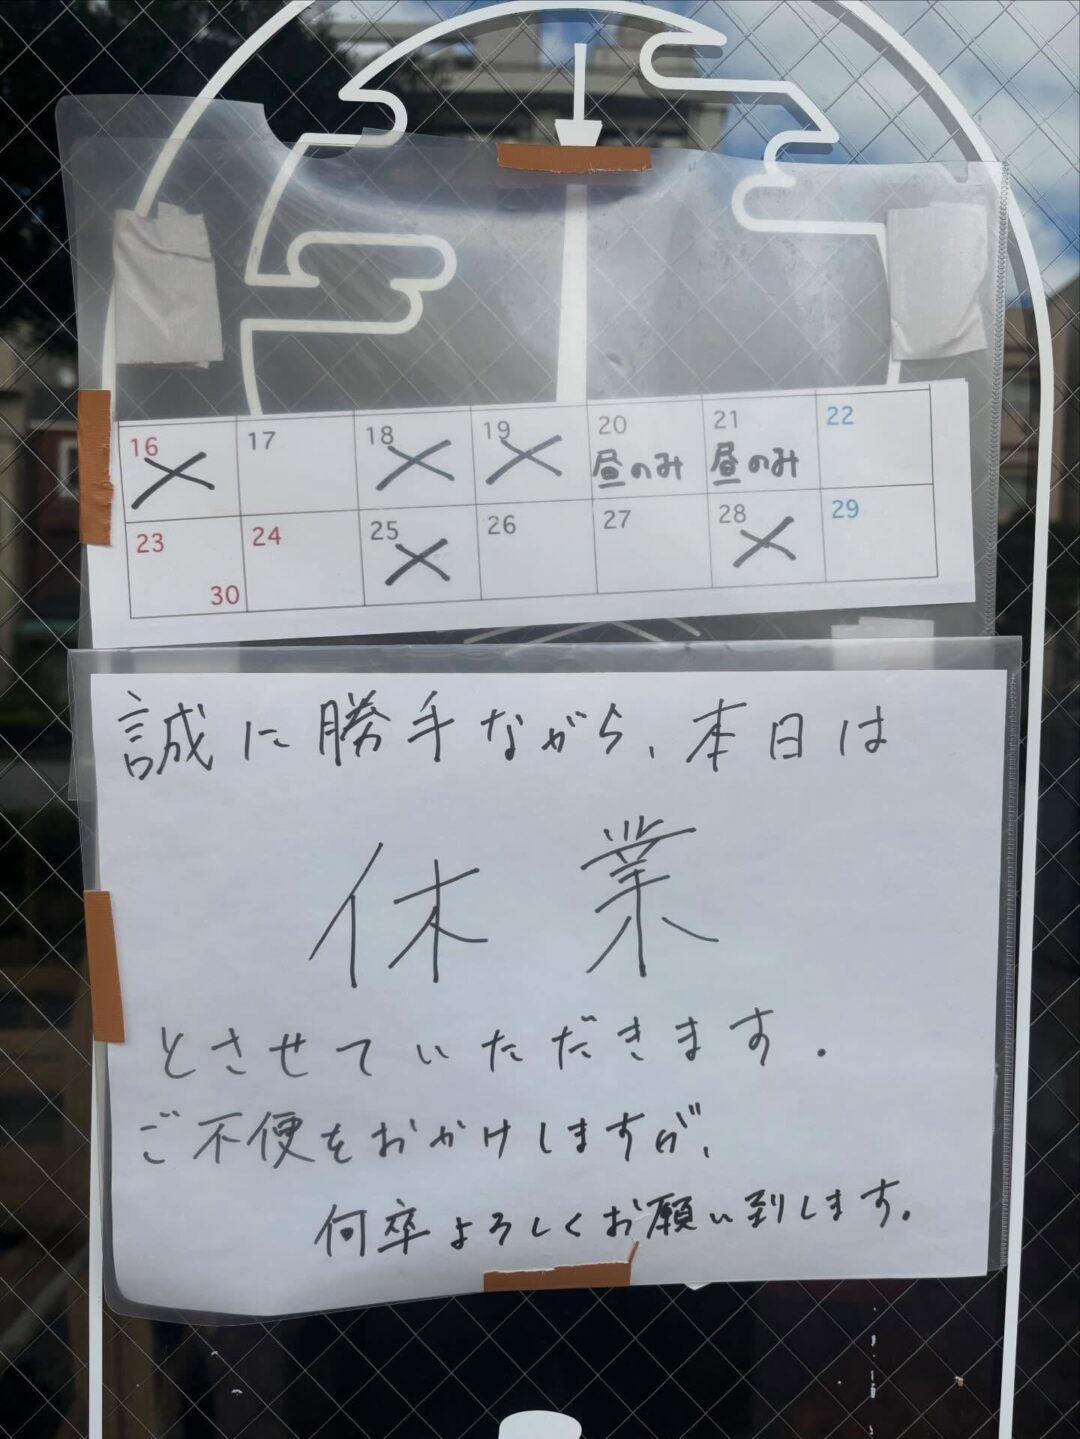 16 17 18 19 20 21 22
昼のみ 昼のみ
23 24 25 26 27 28 29
30
誠に勝手ながら、本日は
休業
とさせていただきます.
ご不便をおかけしますが、
何卒よろしくお願い到します.